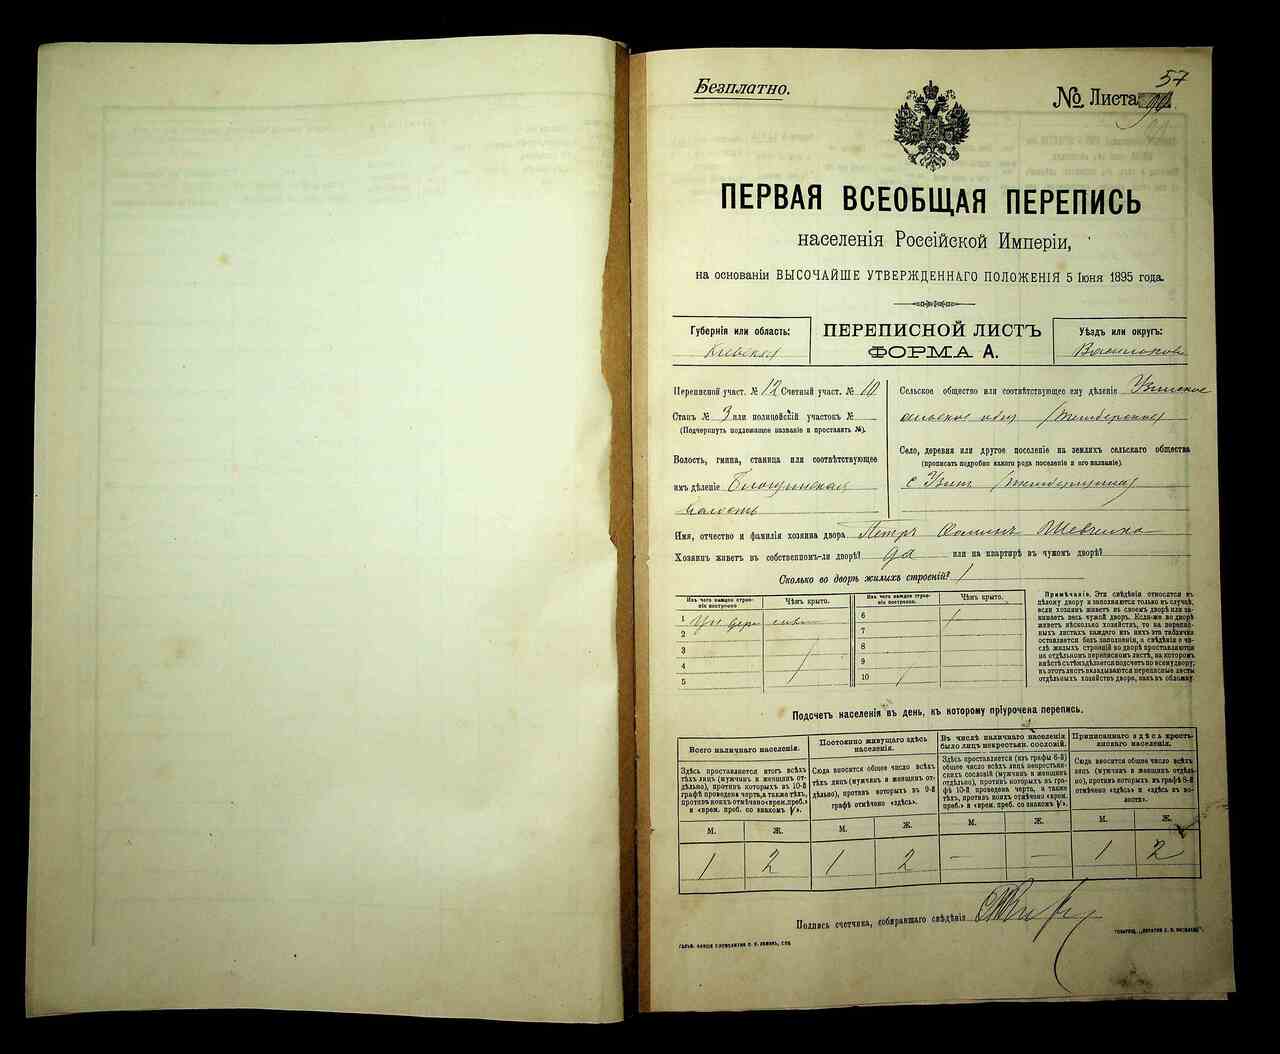 Безплатно.
57
№ Листа
ПЕРВАЯ ВСЕОБЩАЯ ПЕРЕПИСЬ
населенія Россійской Имперіи,
на основаніи ВЫСОЧАЙШЕ УТВЕРЖДЕННАГО ПОЛОЖЕНІЯ 5 Іюня 1895 года.
Губернія или область:
Кіевская
ПЕРЕПИСНОЙ ЛИСТЪ
ФОРМА А.
Уѣздъ или округъ:
Васильков
Переписной участ. № 12 Счетный участ. № 10
Станъ № 3 или полицейскій участокъ №
(Подчеркнуть подлежащее названіе и проставить №).
Волость, гмина, станица или соотвѣтствующее
имъ дѣленіе
волость
Сельское общество или соотвѣтствующее ему дѣленіе Узинское
сельское
Село, деревня или другое поселеніе на земляхъ сельскаго общества
(прописать подробно какого рода поселеніе и его названіе).
с. Узинъ
Имя, отчество и фамилія хозяина двора Петръ Шевченко
Хозяинъ живетъ въ собственномъ-ли дворѣ? да или на квартирѣ въ чужомъ дворѣ?
Сколько во дворѣ жилыхъ строеній? 1
Изъ чего каждое строеніе построено
Чѣмъ крыто.
1
2
3
4
5
Изъ чего каждое строеніе построено.
Чѣмъ крыто.
6
7
8
9
10
Примѣчаніе. Эти свѣдѣнія относятся къ
цѣлому двору и заполняются только въ случаѣ,
если хозяинъ живетъ въ своемъ дворѣ или занимаетъ
весь чужой дворъ. Если-же во дворѣ
живетъ нѣсколько хозяйствъ, то на переписныхъ
листахъ каждаго изъ нихъ эта табличка
оставляется безъ заполненія, а свѣдѣнія о числѣ
жилыхъ строеній во дворѣ проставляются
на отдѣльномъ переписномъ листѣ, на которомъ
вмѣстѣ съ тѣмъ дѣлается подсчетъ по всему двору;
въ этотъ листъ вкладываются переписные листы
отдѣльныхъ хозяйствъ двора, какъ въ обложку.
Подсчетъ населенія въ день, къ которому пріурочена перепись.
Всего наличнаго населенія.
Здѣсь проставляется итогъ всѣхъ
тѣхъ лицъ (мужчинъ и женщинъ отдѣльно),
противъ которыхъ въ 10-й
графѣ проведена черта, а также тѣхъ,
противъ коихъ отмѣчено «врем. преб.»
и «врем. преб. со знакомъ V».
Постоянно живущаго здѣсь
населенія.
Сюда вносится общее число всѣхъ
тѣхъ лицъ (мужчинъ и женщинъ отдѣльно),
противъ которыхъ въ 9-й
графѣ отмѣчено «здѣсь».
Въ числѣ наличнаго населенія
было лицъ некрестьян. сословій.
Здѣсь проставляется (изъ графы 6-й)
общее число всѣхъ лицъ некрестьянскихъ
сословій (мужчинъ и женщинъ
отдѣльно), противъ которыхъ въ графѣ
10-й проведена черта, а также
тѣхъ, противъ коихъ отмѣчено «врем.
преб.» и «врем. преб. со знакомъ V».
Приписаннаго здѣсь крестьянскаго
населенія.
Сюда вносится общее число всѣхъ
лицъ (мужчинъ и женщинъ отдѣльно),
противъ которыхъ въ графѣ 8-й
отмѣчено «здѣсь» и «здѣсь въ волости».
М. Ж. М. Ж. М. Ж. М. Ж.
1 2 1 2 — — 1 2
Подпись счетчика, собиравшаго свѣдѣнія